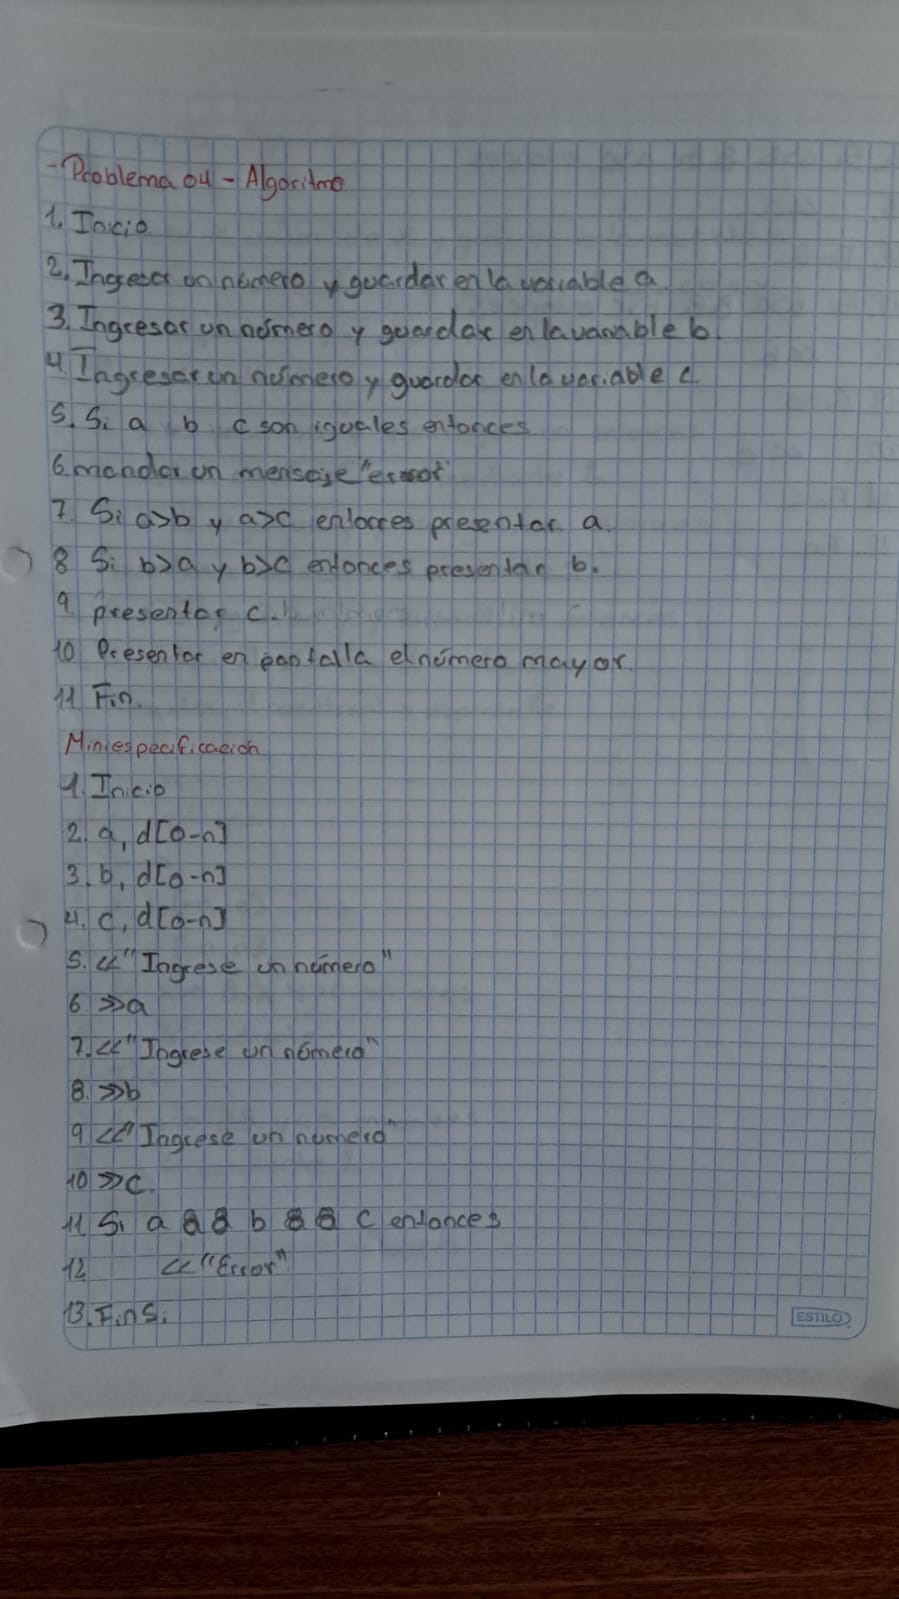 - Problema 04 - Algoritmo
1. Inicio
2. Ingresar un número y guardar en la variable a
3. Ingresar un número y guardar en la variable b.
4. Ingresar un número y guardar en la variable c
5. Si a b c son iguales entonces
6. mandar un mensaje "error"
7. Si a>b y a>c entonces presentar a.
8 Si b>a y b>c entonces presentar b.
9 presentar c.
10 Presentar en pantalla el número mayor.
11 Fin.
Miniespecificación
1. Inicio
2. a, d[0-n]
3. b, d[0-n]
4. c, d[0-n]
5. << "Ingrese un número"
6 >>a
7. << "Ingrese un número"
8. >>b
9 << "Ingrese un numero"
10 >>c.
11 Si a && b && c entonces
12 << "Error"
13. Fin Si
ESTILO